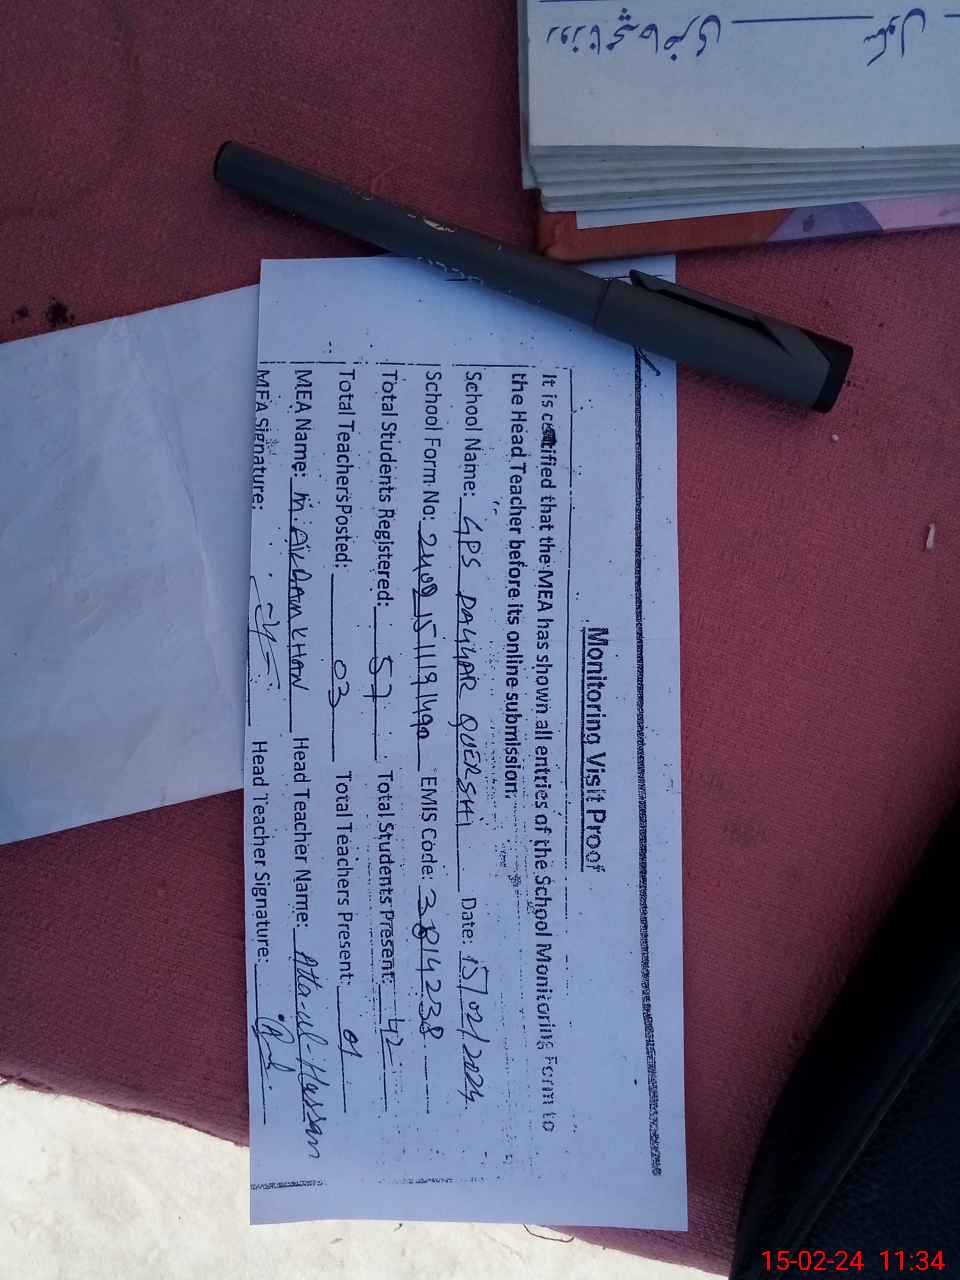 روزنامچہ حاضری
سکول
Monitoring Visit Proof
It is certified that the MEA has shown all entries of the School Monitoring Form to
the Head Teacher before its online submission.
School Name: GPS DALLAR QUERSHI Date: 15/02/2024
School Form No: EMIS Code:
Total Students Registered: 57 Total Students Present: 42
Total Teachers Posted: 03 Total Teachers Present: 01
MEA Name: KHAN Head Teacher Name: Atta-ul-Hassan
MEA Signature: Head Teacher Signature:
15-02-24 11:34